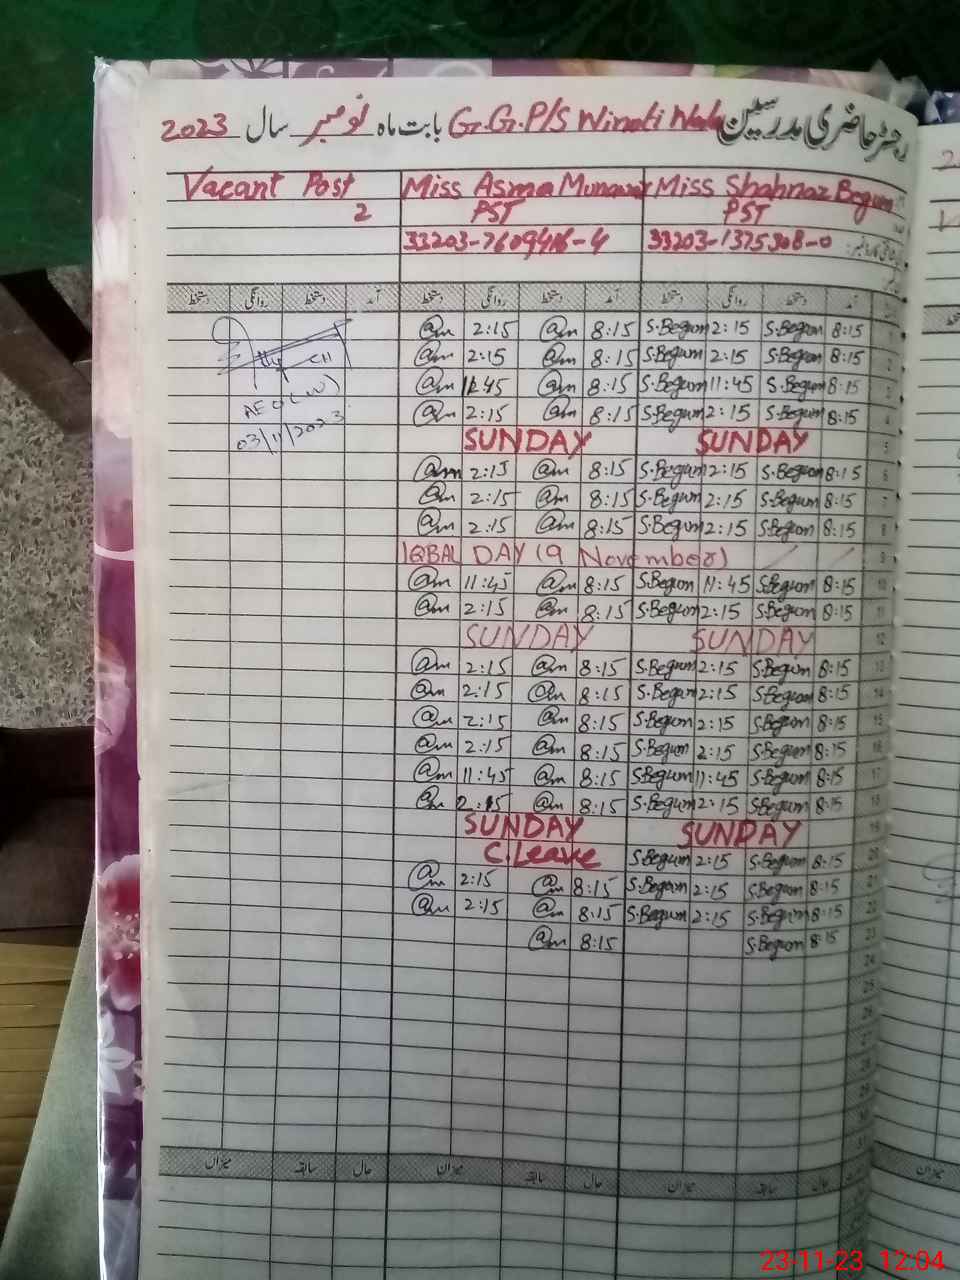 رجسٹر حاضری مدرسین G.G.P/S Winoti Wala بابت ماہ نومبر سال 2023
Vacant Post Miss Asma Munawar Miss Shahnaz Begum
2 PST PST
33203-7609416-4 33203-1375308-0
دستخط روانگی دستخط آمد دستخط روانگی دستخط آمد دستخط روانگی دستخط آمد
@m 2:15 @m 8:15 S.Begum 2:15 S.Begum 8:15 1
@m 2:15 @m 8:15 S.Begum 2:15 S.Begum 8:15 2
@m 11:45 @m 8:15 S.Begum 11:45 S.Begum 8:15 3
AEO
@m 2:15 @m 8:15 S.Begum 2:15 S.Begum 8:15 4
03/11/2023
SUNDAY SUNDAY 5
@m 2:15 @m 8:15 S.Begum 2:15 S.Begum 8:15 6
@m 2:15 @m 8:15 S.Begum 2:15 S.Begum 8:15 7
@m 2:15 @m 8:15 S.Begum 2:15 S.Begum 8:15 8
IQBAL DAY (9 November) 9
@m 11:45 @m 8:15 S.Begum 11:45 S.Begum 8:15 10
@m 2:15 @m 8:15 S.Begum 2:15 S.Begum 8:15 11
SUNDAY SUNDAY 12
@m 2:15 @m 8:15 S.Begum 2:15 S.Begum 8:15 13
@m 2:15 @m 8:15 S.Begum 2:15 S.Begum 8:15 14
@m 2:15 @m 8:15 S.Begum 2:15 S.Begum 8:15 15
@m 2:15 @m 8:15 S.Begum 2:15 S.Begum 8:15 16
@m 11:45 @m 8:15 S.Begum 11:45 S.Begum 8:15 17
@m 2:15 @m 8:15 S.Begum 2:15 S.Begum 8:15 18
SUNDAY SUNDAY 19
C.Leave S.Begum 2:15 S.Begum 8:15 20
@m 2:15 @m 8:15 S.Begum 2:15 S.Begum 8:15 21
@m 2:15 @m 8:15 S.Begum 2:15 S.Begum 8:15 22
@m 8:15 S.Begum 8:15 23
24
25
26
27
28
29
30
31
میزان سابقہ حال میزان سابقہ حال میزان سابقہ حال
23-11-23 12:04